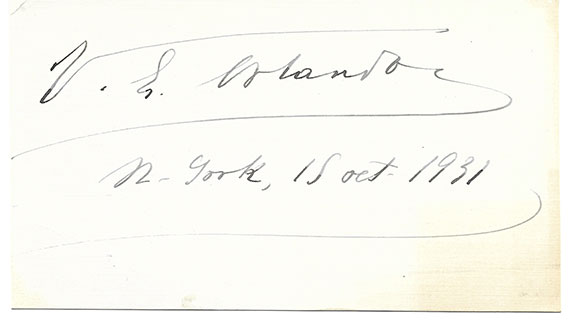 V. E. Orlando
N-York, 15 oct. 1931